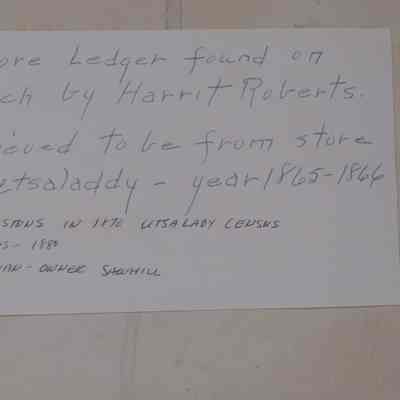 ore Ledger found on
ch by Harrit Roberts.
eved to be from store
etsaladdy - year 1865-1866
IN 1870 UTSALADY CENSUS
- 1880
AN - OWNER SAWMILL